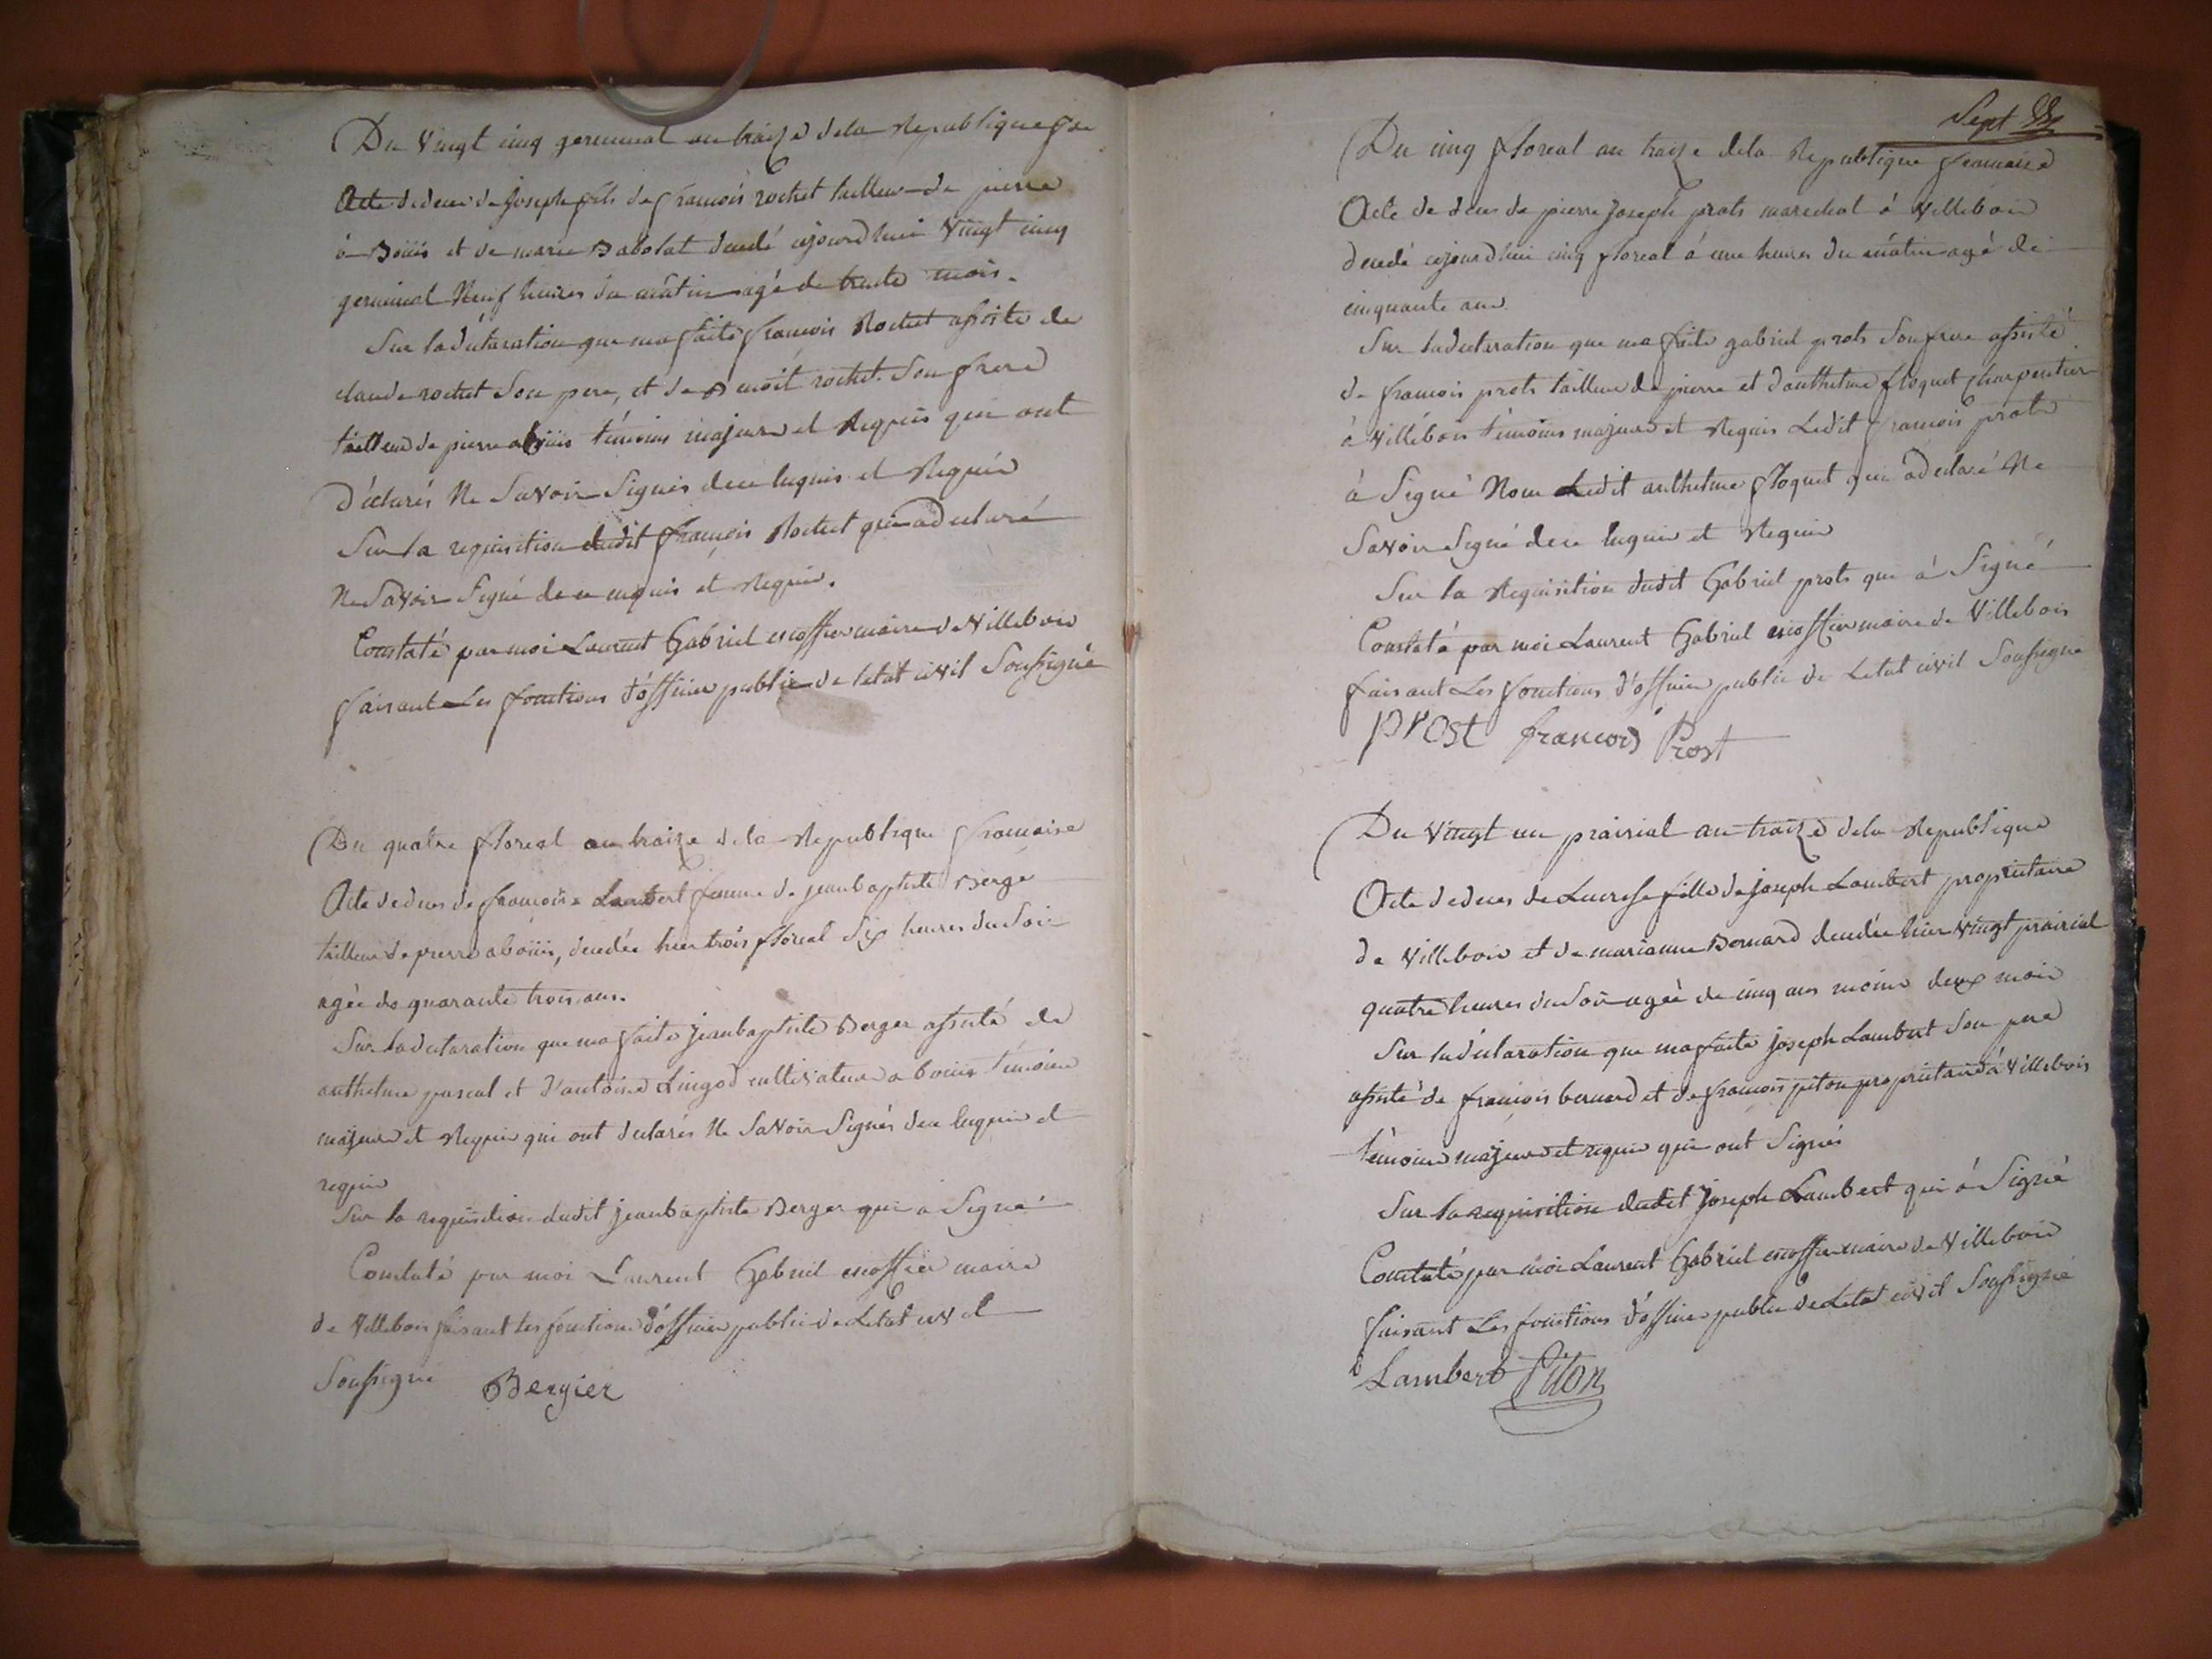 Du Vingt cinq germinal an traize dela Republique fse
Acte de deces de Joseph fils de francois rochet tailleur de pierre
à Bouis et de marie Babolat decedé ajourdhui Vingt cinq
germinal Neuf heures du matin agé de trente mois.
Sur la déclaration que ma faite francois Rochet assisté de
claude rochet Son pere, et de Benoit rochet Son frere
tailleur de pierre a bouis témoins majeurs et Requis qui ont
déclarés Ne Savoir Signés dece Enquis et Requis
Sur la requisition dudit francois Rochet qui a declaré
Ne Savoir Signé de ce enquis et Requis.
Constaté par moi Laurent Gabriel escoffier maire de Villebois
faisant Les fonctions d'officier public de letat civil Soussigné
Du quatre floreal an traize dela Republique francaise
Acte de deces de francoise Lambert femme de jeanbaptiste Berge
tailleur de pierre a bouis, decedée hier trois floreal Six heures du Soir
agée de quarante trois ans.
Sur la declaration que ma faite jeanbaptiste Berger assisté de
anthelme pascal et d'antoine Lingod cultivateur a bouis témoins
majeurs et Requis qui ont declarés Ne Savoir Signés dece Enquis et
requis
Sur la requisition dudit jeanbaptiste Berger qui a Signé
Constaté par moi Laurent Gabriel escoffier maire
de Villebois faisant les fonctions d'officier public de Letat civil
Soussigné Bergier
Sept
Du cinq floreal an traize dela Republique francaise
Acte de deces de pierre Joseph prots marechal à Villebois
decedé ajourdhui cinq floreal à une heures du matin agé de
cinquante ans
Sur la declaration que ma faite gabriel prots Son frere assisté
de francois prots tailleur de pierre et d'anthelme floquet charpentier
à Villebois témoins majeurs et Requis Ledit francois prots
à Signé Non Ledit anthelme floquet qui a declaré Ne
Savoir Signé dece Enquis et Requis
Sur la Requisition dudit Gabriel prots qui à Signé
Constaté par moi Laurent Gabriel escoffier maire de Villebois
faisant Les fonctions d'officier public de Letat civil Soussigné
prost francois Prost
Du Vingt un prairial an traize dela Republique
Acte de deces de Lucresse fille de Joseph Lambert proprietaire
de Villebois et de marianne Bernard decedée hier Vingt prairial
quatre heures du Soir agée de cinq ans moins deux mois
Sur la déclaration que ma faite Joseph Lambert Son pere
assisté de francois bernard et de francois piton proprietaire à Villebois
témoins majeurs et requis qui ont Signés
Sur la requisition dudit Joseph Lambert qui à Signé
Constaté par moi Laurent Gabriel escoffier maire de Villebois
faisant Les fonctions d'officier public de Letat civil Soussigné
Lambert Piton